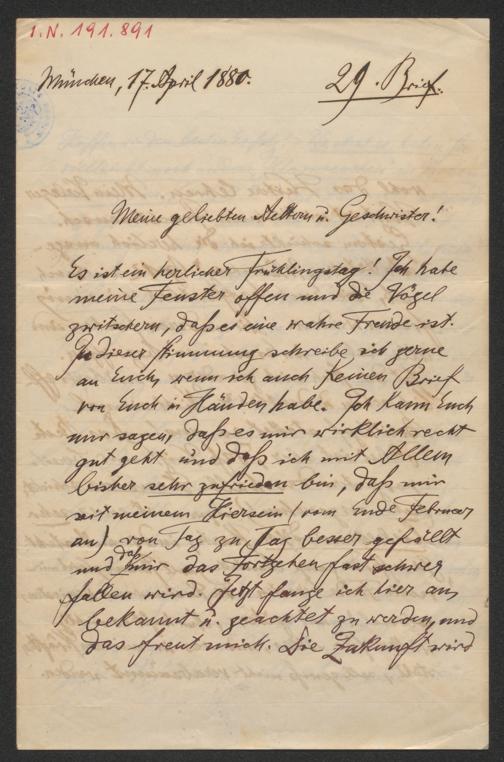 I.N. 191.891
München, 17. April 1880.
29. Brief.
Meine geliebten Aeltern u. Geschwister!
Es ist ein herlicher Frühlingstag! Ich habe
meine Fenster offen und die Vögel
zwitschern, daß es eine wahre Freude ist.
In dieser Stimmung schreibe ich gerne
an Euch, wenn ich auch keinen Brief
von Euch in Händen habe. Ich kann Euch
nur sagen, daß es mir wirklich recht
gut geht und daß ich mit Allem
bisher sehr zufrieden bin, daß mir
seit meinem Hiersein (vom Ende Februar
an) von Tag zu Tag besser gefällt
und daß mir das Fortgehen fast schwer
fallen wird. Jetzt fange ich hier an
bekannt u. geachtet zu werden, und
das freut mich. Die Zukunft wird